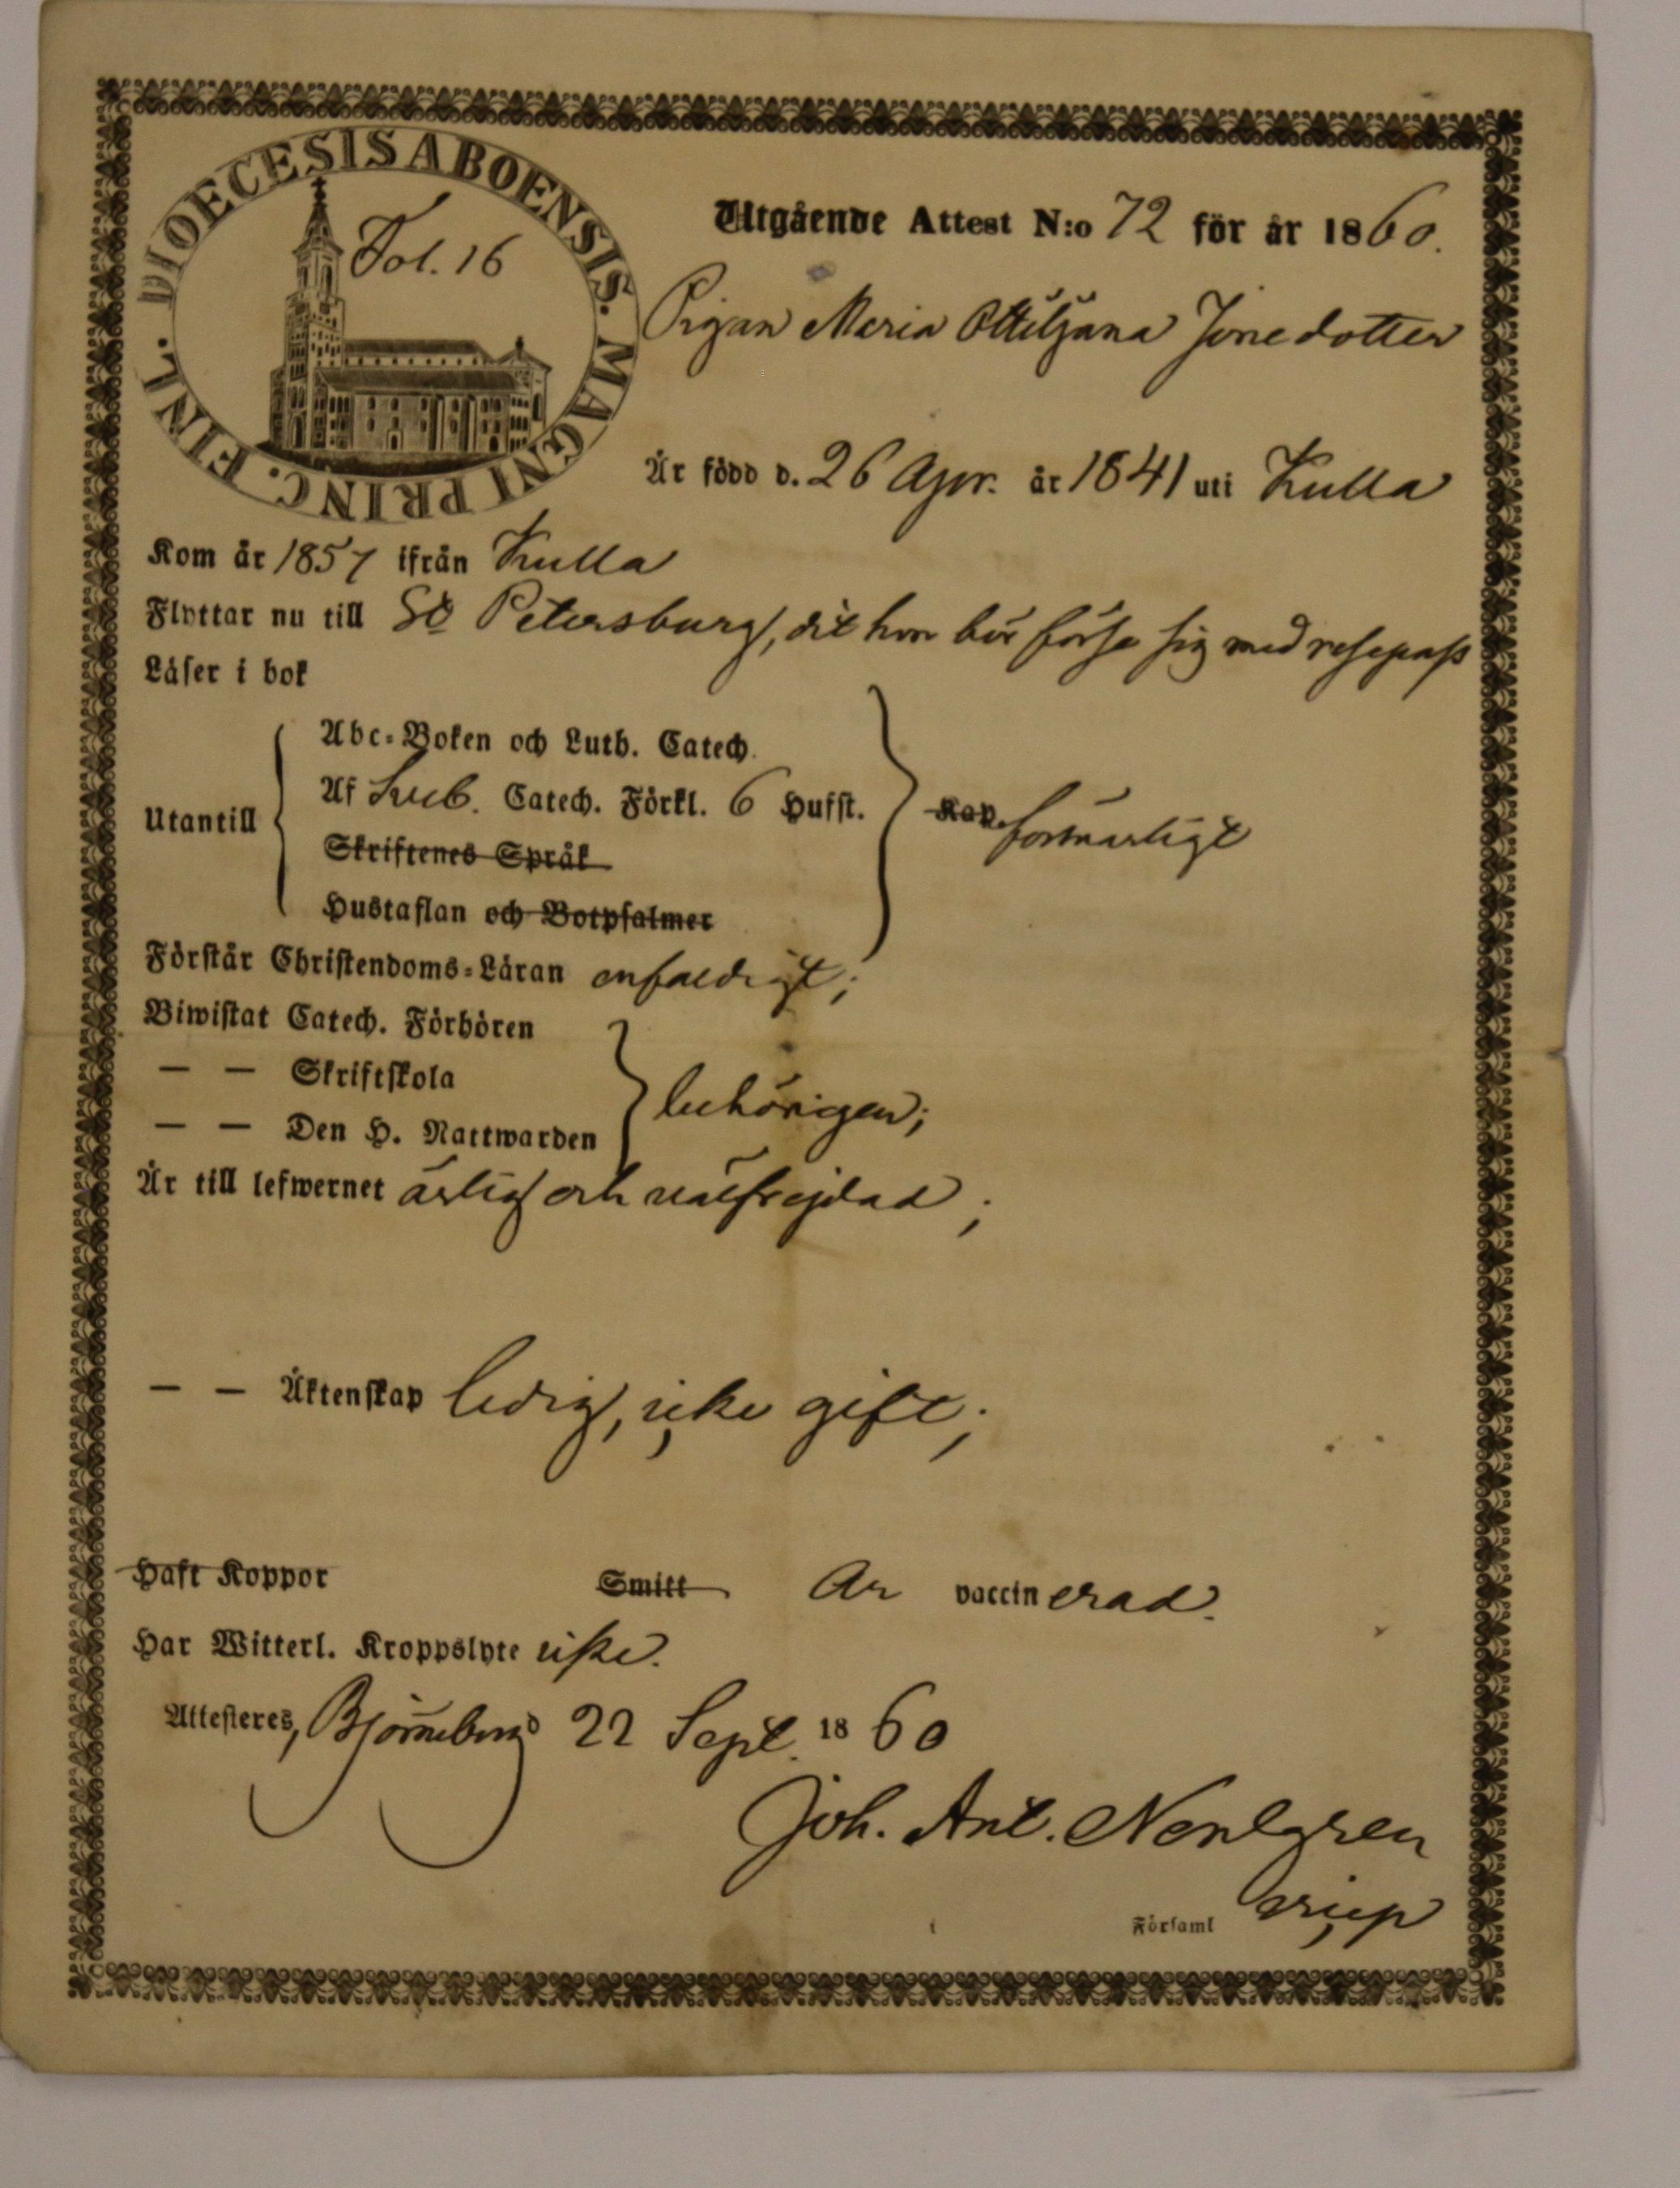 DIOECESIS ABOENSIS. MAGNI PRINC. FINL.
Fol. 16
Utgående Attest N:o 72 för år 1860.
Pigan Maria Ottiljana Jonedotter
Är född d. 26 Apr. år 1841 uti Kulla
Kom år 1857 ifrån Kulla
Flyttar nu till St Petersburg, dit hon bör förse sig med resepass
Läser i bok
Utantill
Abc-Boken och Luth. Catech.
Af Sveb. Catech. Förkl. 6 Hufst.
Skriftenes Språk
Hustaflan och Botpsalmer
Kap. försvarligt
Förstår Christendoms-Läran enfaldigt;
Biwistat Catech. Förhören
— — Skriftskola
— — Den H. Nattwarden
behörigen;
Är till lefwernet ärlig och välfrejdad;
— — Äktenskap ledig, icke gift;
Haft Koppor Smitt Är vaccinerad.
Har Witterl. Kroppslyte icke.
Attesteres, Björneborg d 22 Sept. 1860
Joh. Ant.
Församl